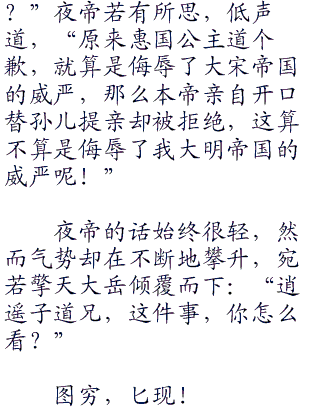 ？”夜帝若有所思，低声
道，“原来惠国公主道个
歉，就算是侮辱了大宋帝国
的威严，那么本帝亲自开口
替孙儿提亲却被拒绝，这算
不算是侮辱了我大明帝国的
威严呢！”
夜帝的话始终很轻，然
而气势却在不断地攀升，宛
若擎天大岳倾覆而下：“逍
遥子道兄，这件事，你怎么
看？”
图穷，匕现！